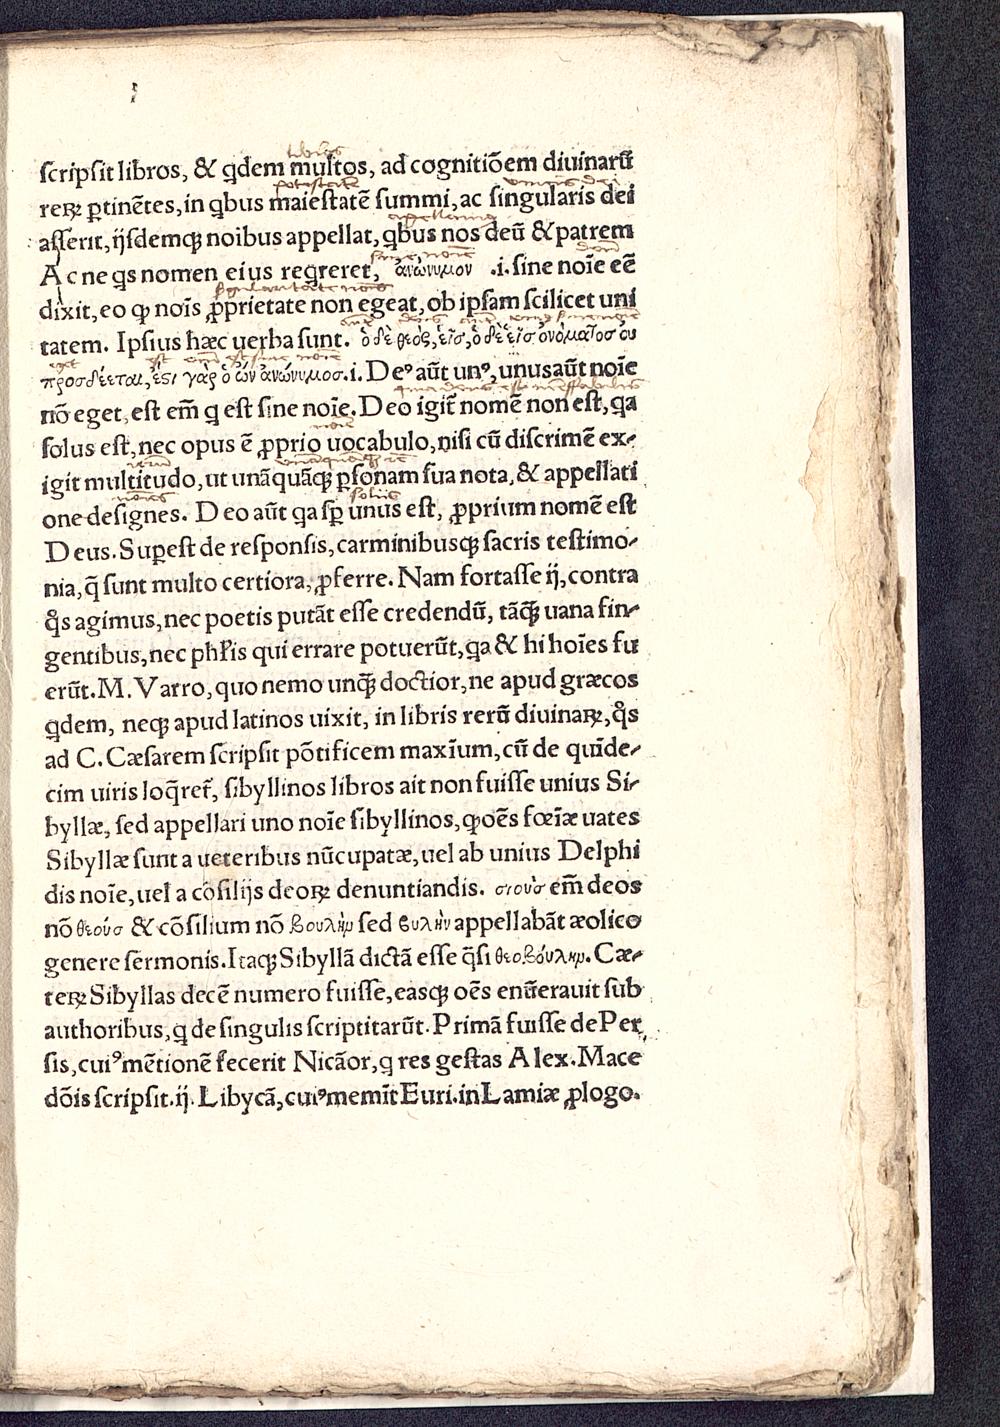 scripsit libros, & qdem multos, ad cognitiõem diuinarũ
reꝝ ꝑtinẽtes, in qbus maiestatẽ summi, ac singularis dei
asserit, ijsdemqꝫ noibus appellat, qbus nos deũ & patrem
Ac ne qs nomen eius reqreret, ἀνώνυμον .i. sine noīe eē
dixit, eo ꝙ noīs ꝓprietate non egeat, ob ipsam scilicet uni
tatem. Ipsius hæc uerba sunt. ὁ δὲ θεὸς, εἷσ, ὁ δὲ εἷσ ὀνόματοσ ου
προσδέεται, ἔστι γὰρ ὁ ὢν ἀνώνυμοσ .i. Deꝰ aũt unꝰ, unusaũt noīe
nō eget, est em̃ q est sine noīe. Deo igit̃ nomẽ non est, qa
solus est, nec opus ē ꝓprio uocabulo, nisi cũ discrimẽ ex-
igit multitudo, ut unãquãqꝫ ꝑsonam sua nota, & appellati
one designes. Deo aũt qa sꝑ unus est, ꝓprium nomẽ est
Deus. Suꝑest de responsis, carminibusqꝫ sacris testimo-
nia, q̃ sunt multo certiora, ꝓferre. Nam fortasse ij, contra
q̊s agimus, nec poetis putãt esse credendũ, tãqꝫ̃ uana fin-
gentibus, nec phĩis qui errare potuerũt, qa & hi hoīes fu
erũt. M. Varro, quo nemo unqꝫ̃ doctior, ne apud græcos
qdem, neqꝫ apud latinos uixit, in libris rerũ diuinaꝝ, q̊s
ad C. Cæsarem scripsit põtificem maxīum, cũ de quīde-
cim uiris loq̃ret̃, sibyllinos libros ait non fuisse unius Si-
byllæ, sed appellari uno noīe sibyllinos, ꝙ oẽs fœīæ uates
Sibyllæ sunt a ueteribus nũcupatæ, uel ab unius Delphi
dis noīe, uel a cõsilijs deoꝝ denuntiandis. σιουσ em̃ deos
nō θεούσ & cõsilium nō βουλὴν sed βυλὴν appellabãt æolico
genere sermonis. Itaqꝫ Sibyllã dictã esse q̃si θεοβούλην. Cæ-
teꝝ Sibyllas decẽ numero fuisse, easqꝫ oẽs enũerauit sub
authoribus, q de singulis scriptitarũt. Primã fuisse de Per
sis, cuiꝰ mẽtionẽ fecerit Nicãor, q res gestas Alex. Mace
dõis scripsit. ij. Libycã, cuiꝰ memīt Euri. in Lamiæ ꝓlogo.